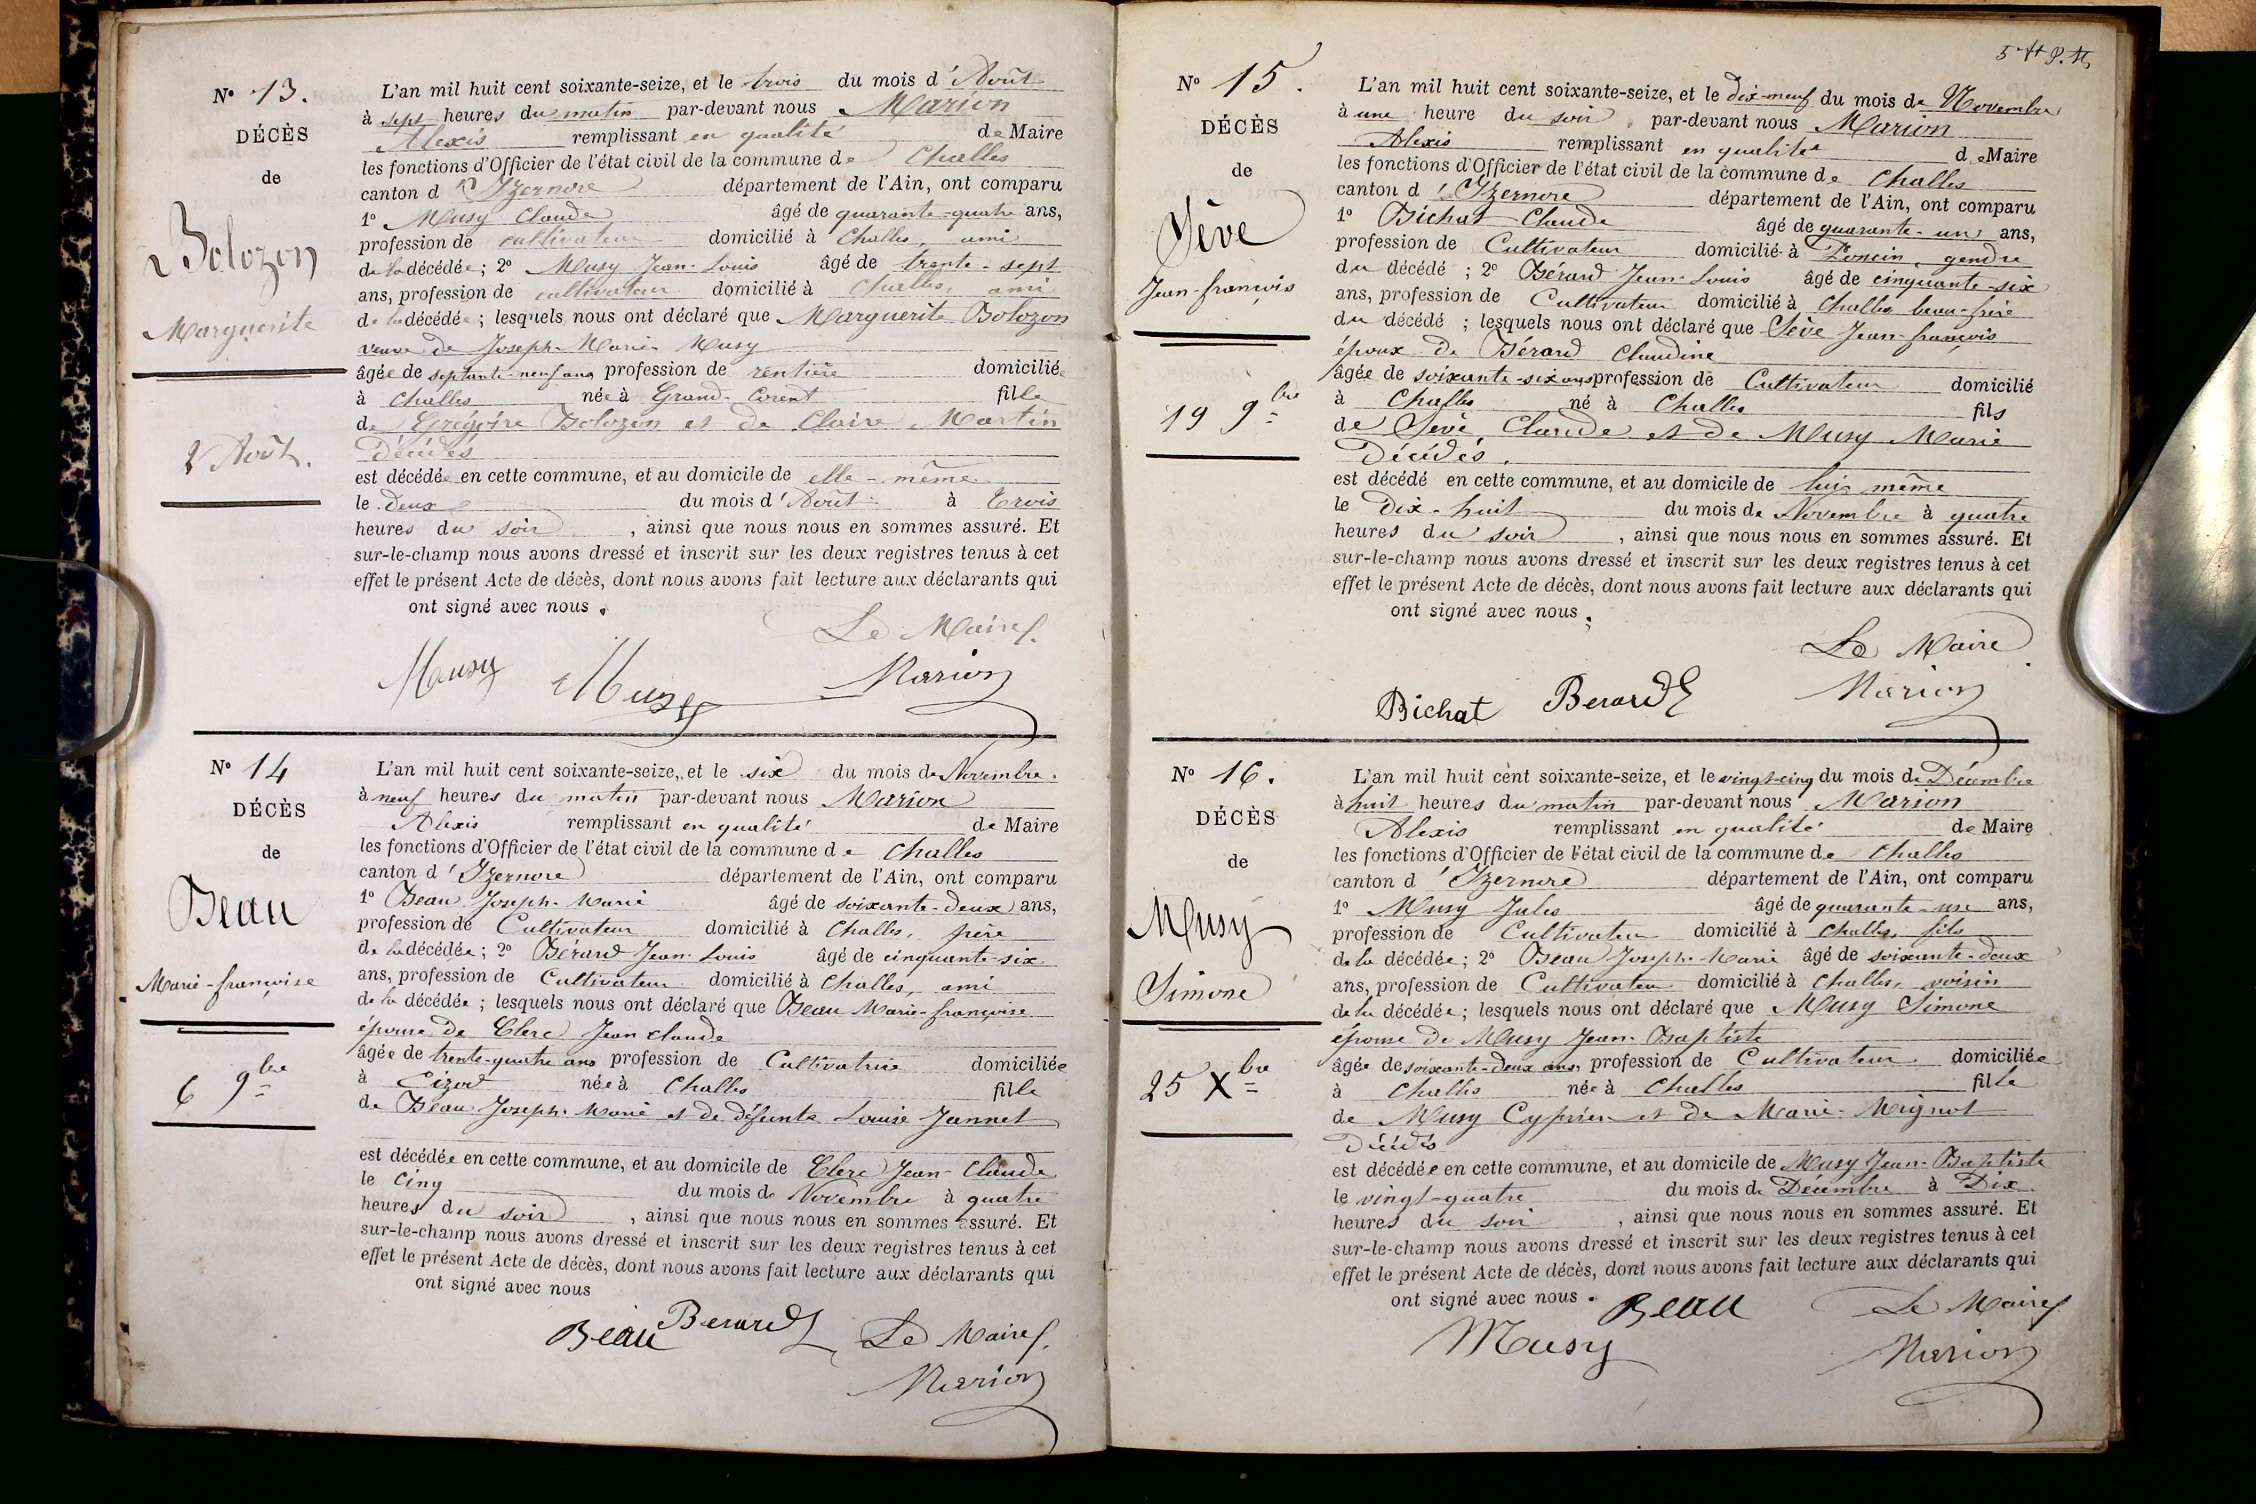 N° 13.
DÉCÈS
de
Bolozon
Marguerite
2 Août.
L'an mil huit cent soixante-seize, et le trois du mois d'Août
à sept heures du matin par-devant nous Marion
Alexis remplissant en qualité de Maire
les fonctions d'Officier de l'état civil de la commune de Challes
canton d'Izernore département de l'Ain, ont comparu
1° Musy Claude âgé de quarante-quatre ans,
profession de cultivateur domicilié à Challes, ami
de la décédée; 2° Musy Jean-Louis âgé de trente-sept
ans, profession de cultivateur domicilié à Challes, ami
de la décédée; lesquels nous ont déclaré que Marguerite Bolozon
veuve de Joseph-Marie Musy
âgée de septante-neuf ans profession de rentière domiciliée
à Challes née à Grand-Corent fille
de Grégoire Bolozon et de Claire Martin
Décédés
est décédée en cette commune, et au domicile de elle-même
le deux du mois d'Août à trois
heures du soir, ainsi que nous nous en sommes assuré. Et
sur-le-champ nous avons dressé et inscrit sur les deux registres tenus à cet
effet le présent Acte de décès, dont nous avons fait lecture aux déclarants qui
ont signé avec nous.
Le Maire
Musy Musy Marion
N° 14
DÉCÈS
de
Beau
Marie-françoise
6 9bre
L'an mil huit cent soixante-seize, et le six du mois de Novembre.
à neuf heures du matin par-devant nous Marion
Alexis remplissant en qualité de Maire
les fonctions d'Officier de l'état civil de la commune de Challes
canton d'Izernore département de l'Ain, ont comparu
1° Beau Joseph-Marie âgé de soixante-deux ans,
profession de Cultivateur domicilié à Challes, père
de la décédée; 2° Bérard Jean-Louis âgé de cinquante-six
ans, profession de Cultivateur domicilié à Challes, ami
de la décédée; lesquels nous ont déclaré que Beau Marie-françoise
épouse de Clerc Jean Claude
âgée de trente-quatre ans profession de Cultivatrice domiciliée
à Cize née à Challes fille
de Beau Joseph-Marie et de défunte Louise Jannet
est décédée en cette commune, et au domicile de Clerc Jean-Claude
le Cinq du mois de Novembre à quatre
heures du soir, ainsi que nous nous en sommes assuré. Et
sur-le-champ nous avons dressé et inscrit sur les deux registres tenus à cet
effet le présent Acte de décès, dont nous avons fait lecture aux déclarants qui
ont signé avec nous
Beau Berard Le Maire
Marion
N° 15.
DÉCÈS
de
Sève
Jean-françois
19 9bre
L'an mil huit cent soixante-seize, et le dix-neuf du mois de Novembre
à une heure du soir, par-devant nous Marion
Alexis remplissant en qualité de Maire
les fonctions d'Officier de l'état civil de la commune de Challes
canton d'Izernore département de l'Ain, ont comparu
1° Bichat Claude âgé de quarante-un ans,
profession de Cultivateur domicilié à Poncin, gendre
du décédé; 2° Bérard Jean-Louis âgé de cinquante-six
ans, profession de Cultivateur domicilié à Challes beau-frère
du décédé; lesquels nous ont déclaré que Sève Jean-françois
époux de Bérard Claudine
âgée de soixante-six ans profession de Cultivateur domicilié
à Challes né à Challes fils
de Sève Claude et de Musy Marie
Décédés.
est décédé en cette commune, et au domicile de lui même
le Dix-huit du mois de Novembre à quatre
heures du soir, ainsi que nous nous en sommes assuré. Et
sur-le-champ nous avons dressé et inscrit sur les deux registres tenus à cet
effet le présent Acte de décès, dont nous avons fait lecture aux déclarants qui
ont signé avec nous.
Le Maire
Bichat Berard Marion
N° 16.
DÉCÈS
de
Musy
Simone
25 Xbre
L'an mil huit cent soixante-seize, et le vingt-cinq du mois de Décembre
à huit heures du matin par-devant nous Marion
Alexis remplissant en qualité de Maire
les fonctions d'Officier de l'état civil de la commune de Challes
canton d'Izernore département de l'Ain, ont comparu
1° Musy Jules âgé de quarante-un ans,
profession de Cultivateur domicilié à Challes, fils
de la décédée; 2° Beau Joseph-Marie âgé de soixante-deux
ans, profession de Cultivateur domicilié à Challes, voisin
de la décédée; lesquels nous ont déclaré que Musy Simone
épouse de Musy Jean-Baptiste
âgée de soixante-deux ans, profession de Cultivateur domiciliée
à Challes née à Challes fille
de Musy Cyprien et de Marie Mignot
Décédés
est décédée en cette commune, et au domicile de Musy Jean-Baptiste
le vingt-quatre du mois de Décembre à Dix
heures du soir, ainsi que nous nous en sommes assuré. Et
sur-le-champ nous avons dressé et inscrit sur les deux registres tenus à cet
effet le présent Acte de décès, dont nous avons fait lecture aux déclarants qui
ont signé avec nous.
Beau Le Maire
Musy Marion